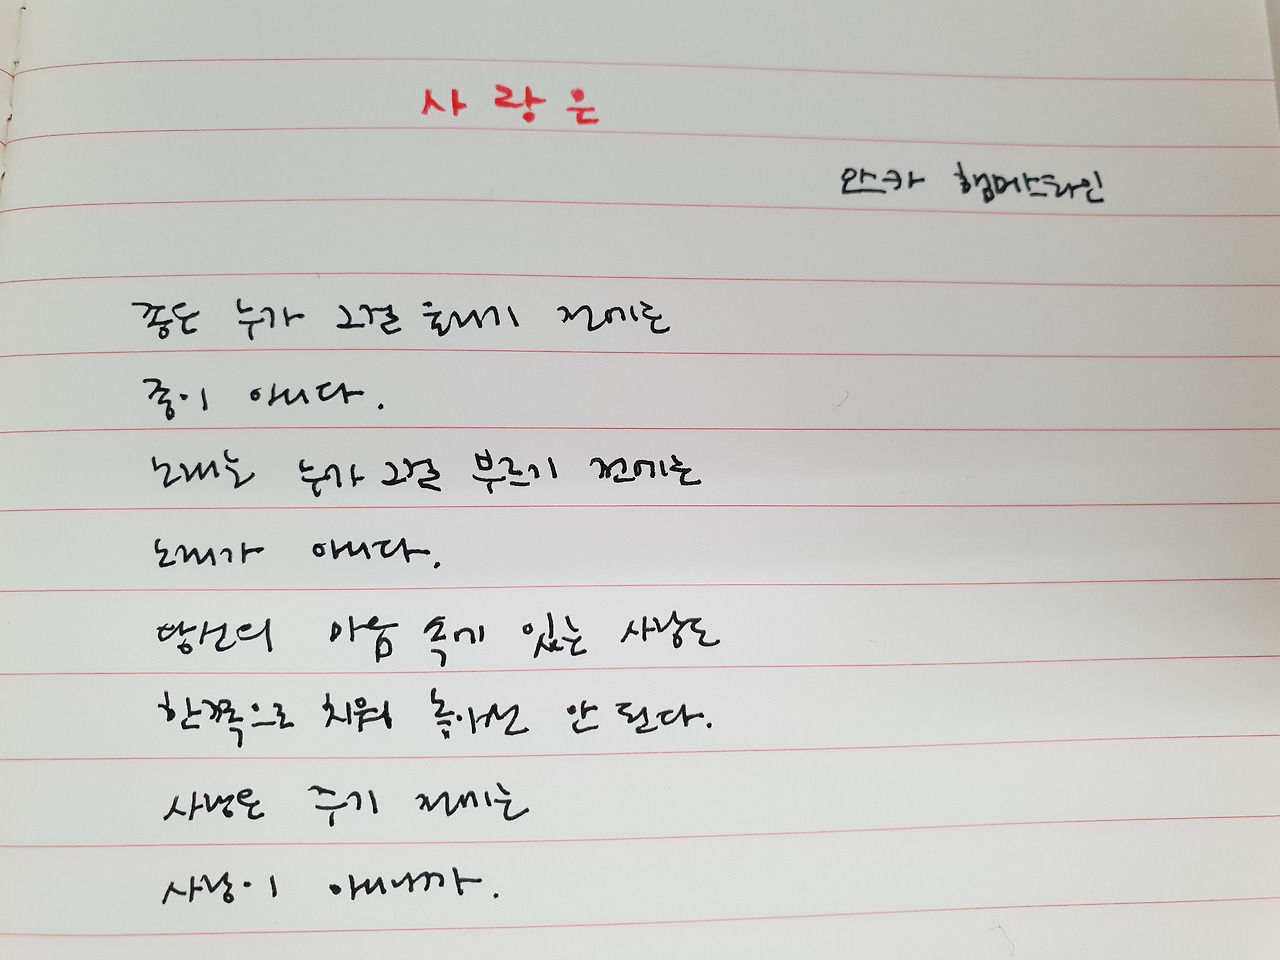 사랑은
안스카 햄머스타인
종은 누가 그걸 울리기 전에는
종이 아니다.
노래는 누가 그걸 부르기 전에는
노래가 아니다.
당신의 마음 속에 있는 사랑도
한쪽으로 치워 놓아선 안 된다.
사랑은 주기 전에는
사랑이 아니니까.